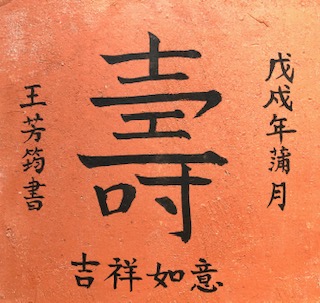 戊戌年蒲月
壽
吉祥如意
王芳筠書